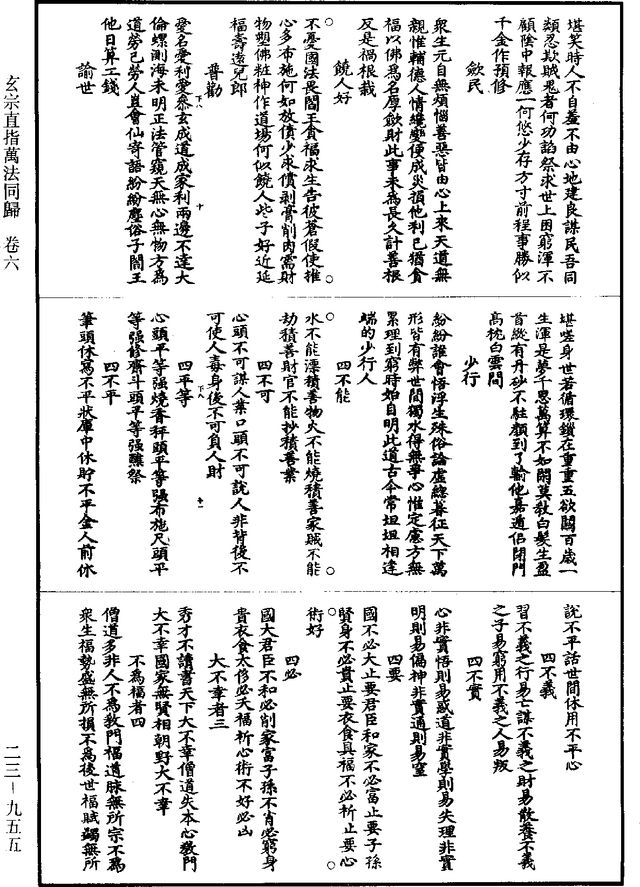 堪笑時人不自羞不由心地建良謀民吾同
顏忍欺賊鬼者何功諂祭求世上困窮渾不
顧陰中報應一何悠少存方寸前程事勝似
千金作預修
斂民
衆生元自無煩惱善惡皆由心上來天道無
親惟輔德人情纔變便成災損他利己猶貪
福以佛爲名厚歛財此事未爲長久計善根
反是禍根栽
饒人好
不憂國法畏閻王貪福求生告彼蒼假使推
心多布施何如放債少求償剥膏削肉需財
物塑佛粧神作道場何似饒人些子好近延
福壽遠兒郎
普勸
愛名愛利愛泰玄成道成家利兩邊不達大
倫螺測海未明正法管窺天無心無物方爲
道勞己勞人豈會仙寄語紛紛塵俗子閻王
他日算工錢
諭世
堪嗟身世若循環鎖在重重五欲關百歲一
生渾是夢千思萬算不如閑莫教白髮生盈
首縱有丹砂不駐顏到了輸他嘉遁侣閉門
高枕白雲間
少行
紛紛誰會悟浮生殊俗論虛總暮征天下萬
形皆有弊世間獨水得無爭心惟定慮方無
累理到窮時始自明此道古今常坦坦相逢
端的少行人
四不能
水不能漂積善物火不能燒積善家賊不能
劫積善財官不能抄積善業
四不可
心頭不可謀人業口頭不可說人非背後不
可使人毒身後不可負人財
四平等
心頭平等强燒香秤頭平等强布施尺頭平
等强修齋斗頭平等强醮祭
四不平
筆頭休寫不平狀庫中休貯不平金人前休
說不平話世間休用不平心
四不義
習不義之行易亡謀不義之財易散養不義
之子易窮用不義之人易叛
四不實
心非實悟則易惑道非實學則易失理非實
明則易偏神非實通則易窒
四要
國不必大止要君臣和家不必富止要子孫
賢身不必貴止要衣食具福不必祈止要心
術好
四必
國大君臣不和必削家富子孫不肖必窮身
貴衣食太侈必夭福祈心術不好必凶
大不幸者三
秀才不讀書天下大不幸僧道失本心教門
大不幸國家無賢相朝野大不幸
不爲福者四
僧道多非人不爲教門福道脉無所宗不爲
衆生福勢盛無所損不爲後世福賦獨無所
玄宗直指萬法同歸 卷六
二三－九五五